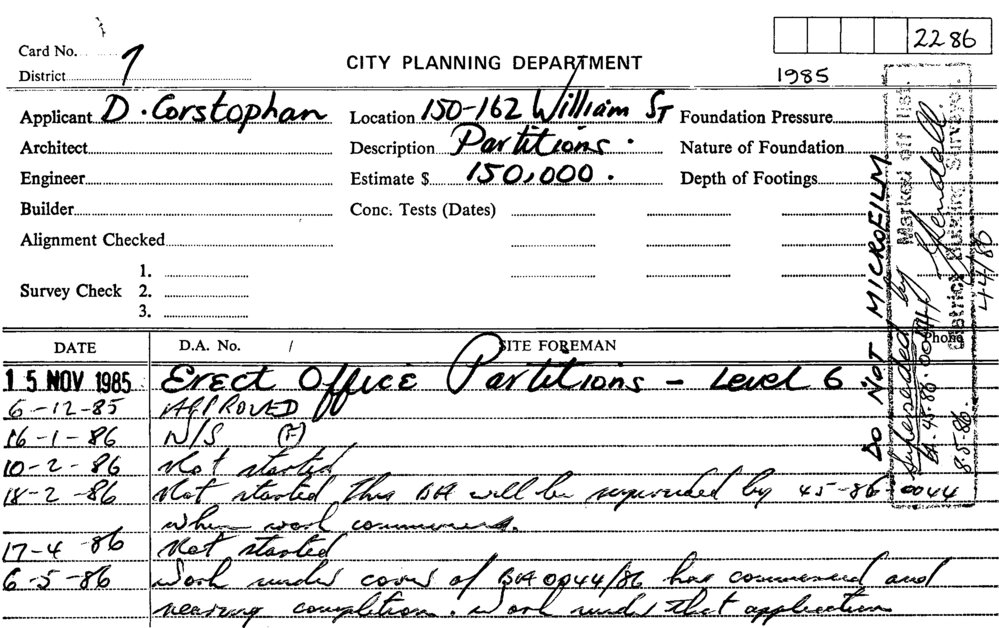 Card No.
2286
District 7
CITY PLANNING DEPARTMENT
1985
Applicant D. Corstophan Location 150-162 William St Foundation Pressure
Architect Description Partitions. Nature of Foundation
Engineer Estimate $ 150,000. Depth of Footings
Builder Conc. Tests (Dates)
Alignment Checked
1.
Survey Check 2.
3.
DATE D.A. No. / SITE FOREMAN Phone
15 NOV 1985 Erect Office Partitions - Level 6
6-12-85 APPROVED
16-1-86 N/S (F)
10-2-86 Not started
18-2-86 Not started this BA will be superseded by 45-86-0044
when work commences.
17-4-86 Not started
6-5-86 Work under cover of BA 0044/86 has commenced and
nearing completion. Work under that application
DO NOT MICROFILM
Superseded by
BA-45-86-0044
8.5.86.
Marked off list.
District Building Surveyor.
44/86